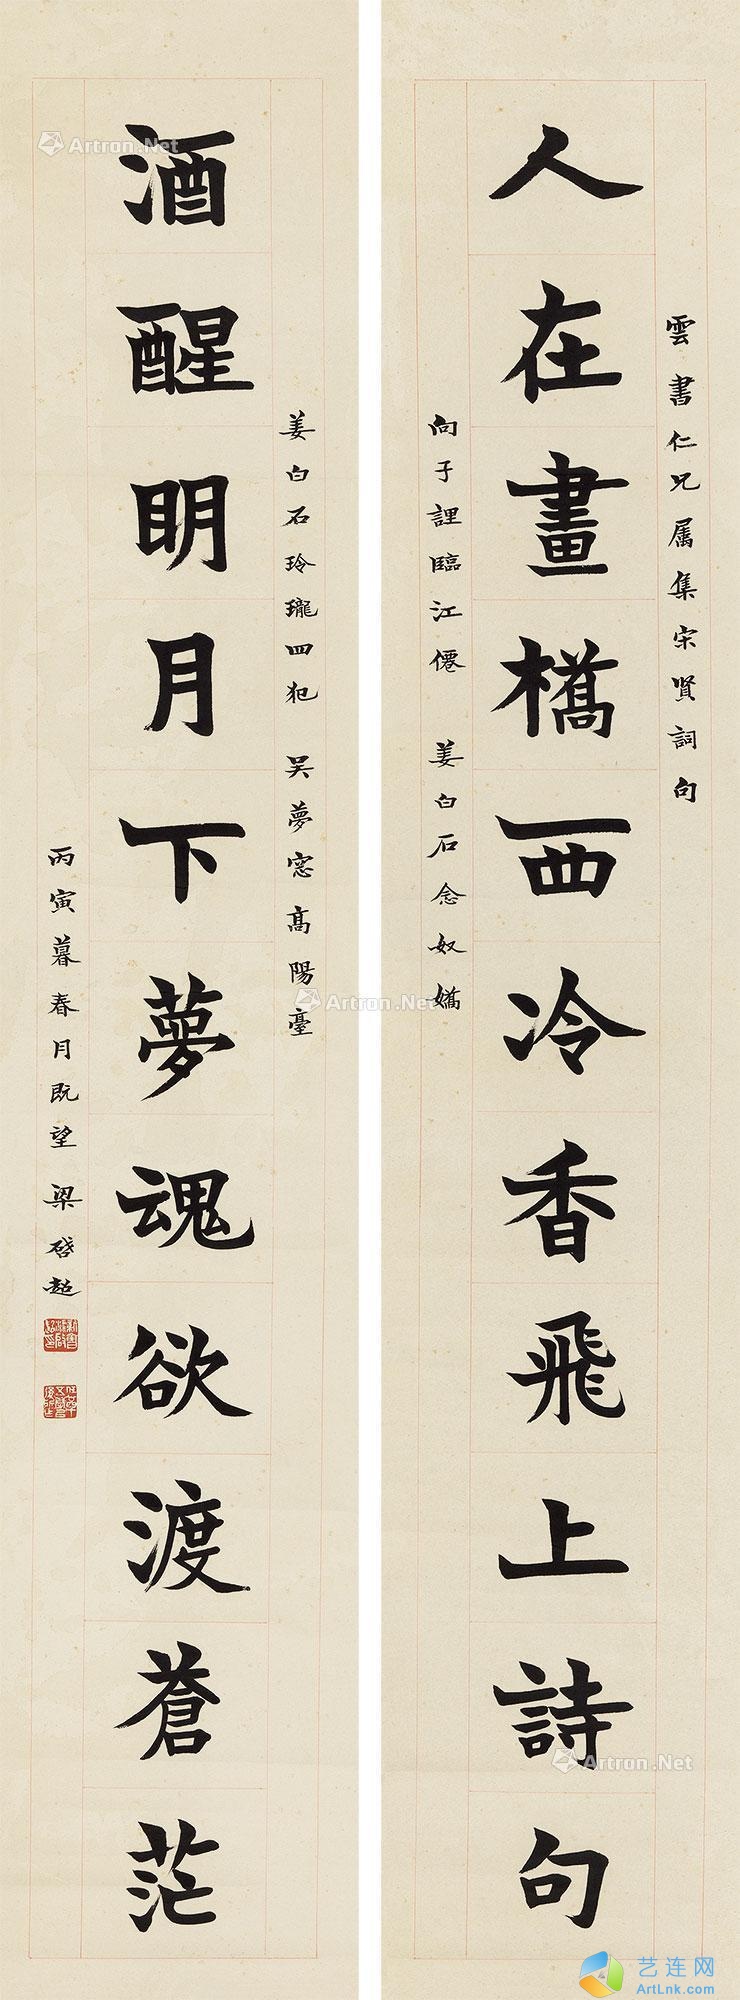 人在畫橋西冷香飛上詩句
雲書仁兄属集宋賢詞句
向子諲臨江僊 姜白石念奴嬌
酒醒明月下夢魂欲渡蒼茫
姜白石玲瓏四犯 吴夢窓高陽臺
丙寅暮春月既望 梁啓超
Artron.Net
Artron.Net
Artron.Net
艺连网
ArtLnk.com